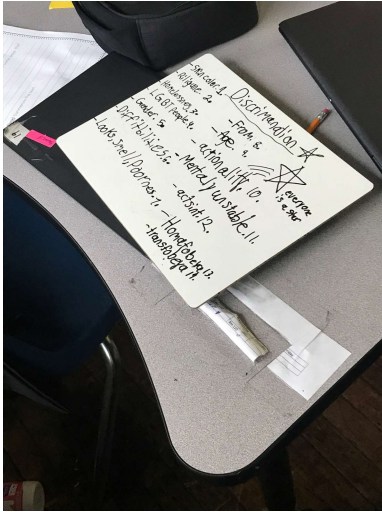 Discrimanation
-Skin coler. 1.
-Religone. 2.
-Homlessnes. 3.
-L.G.B.T People. 4.
-Gender. 5.
-Diffitibilities. 6.
-Looks. Smell, Poornes. 7.
-From. 8.
-Age. 9.
-actionality. 10.
-Mentaly unstable. 11.
-actsint. 12.
-Homofobera. 13.
-transfobera 14.
everyone
is a star